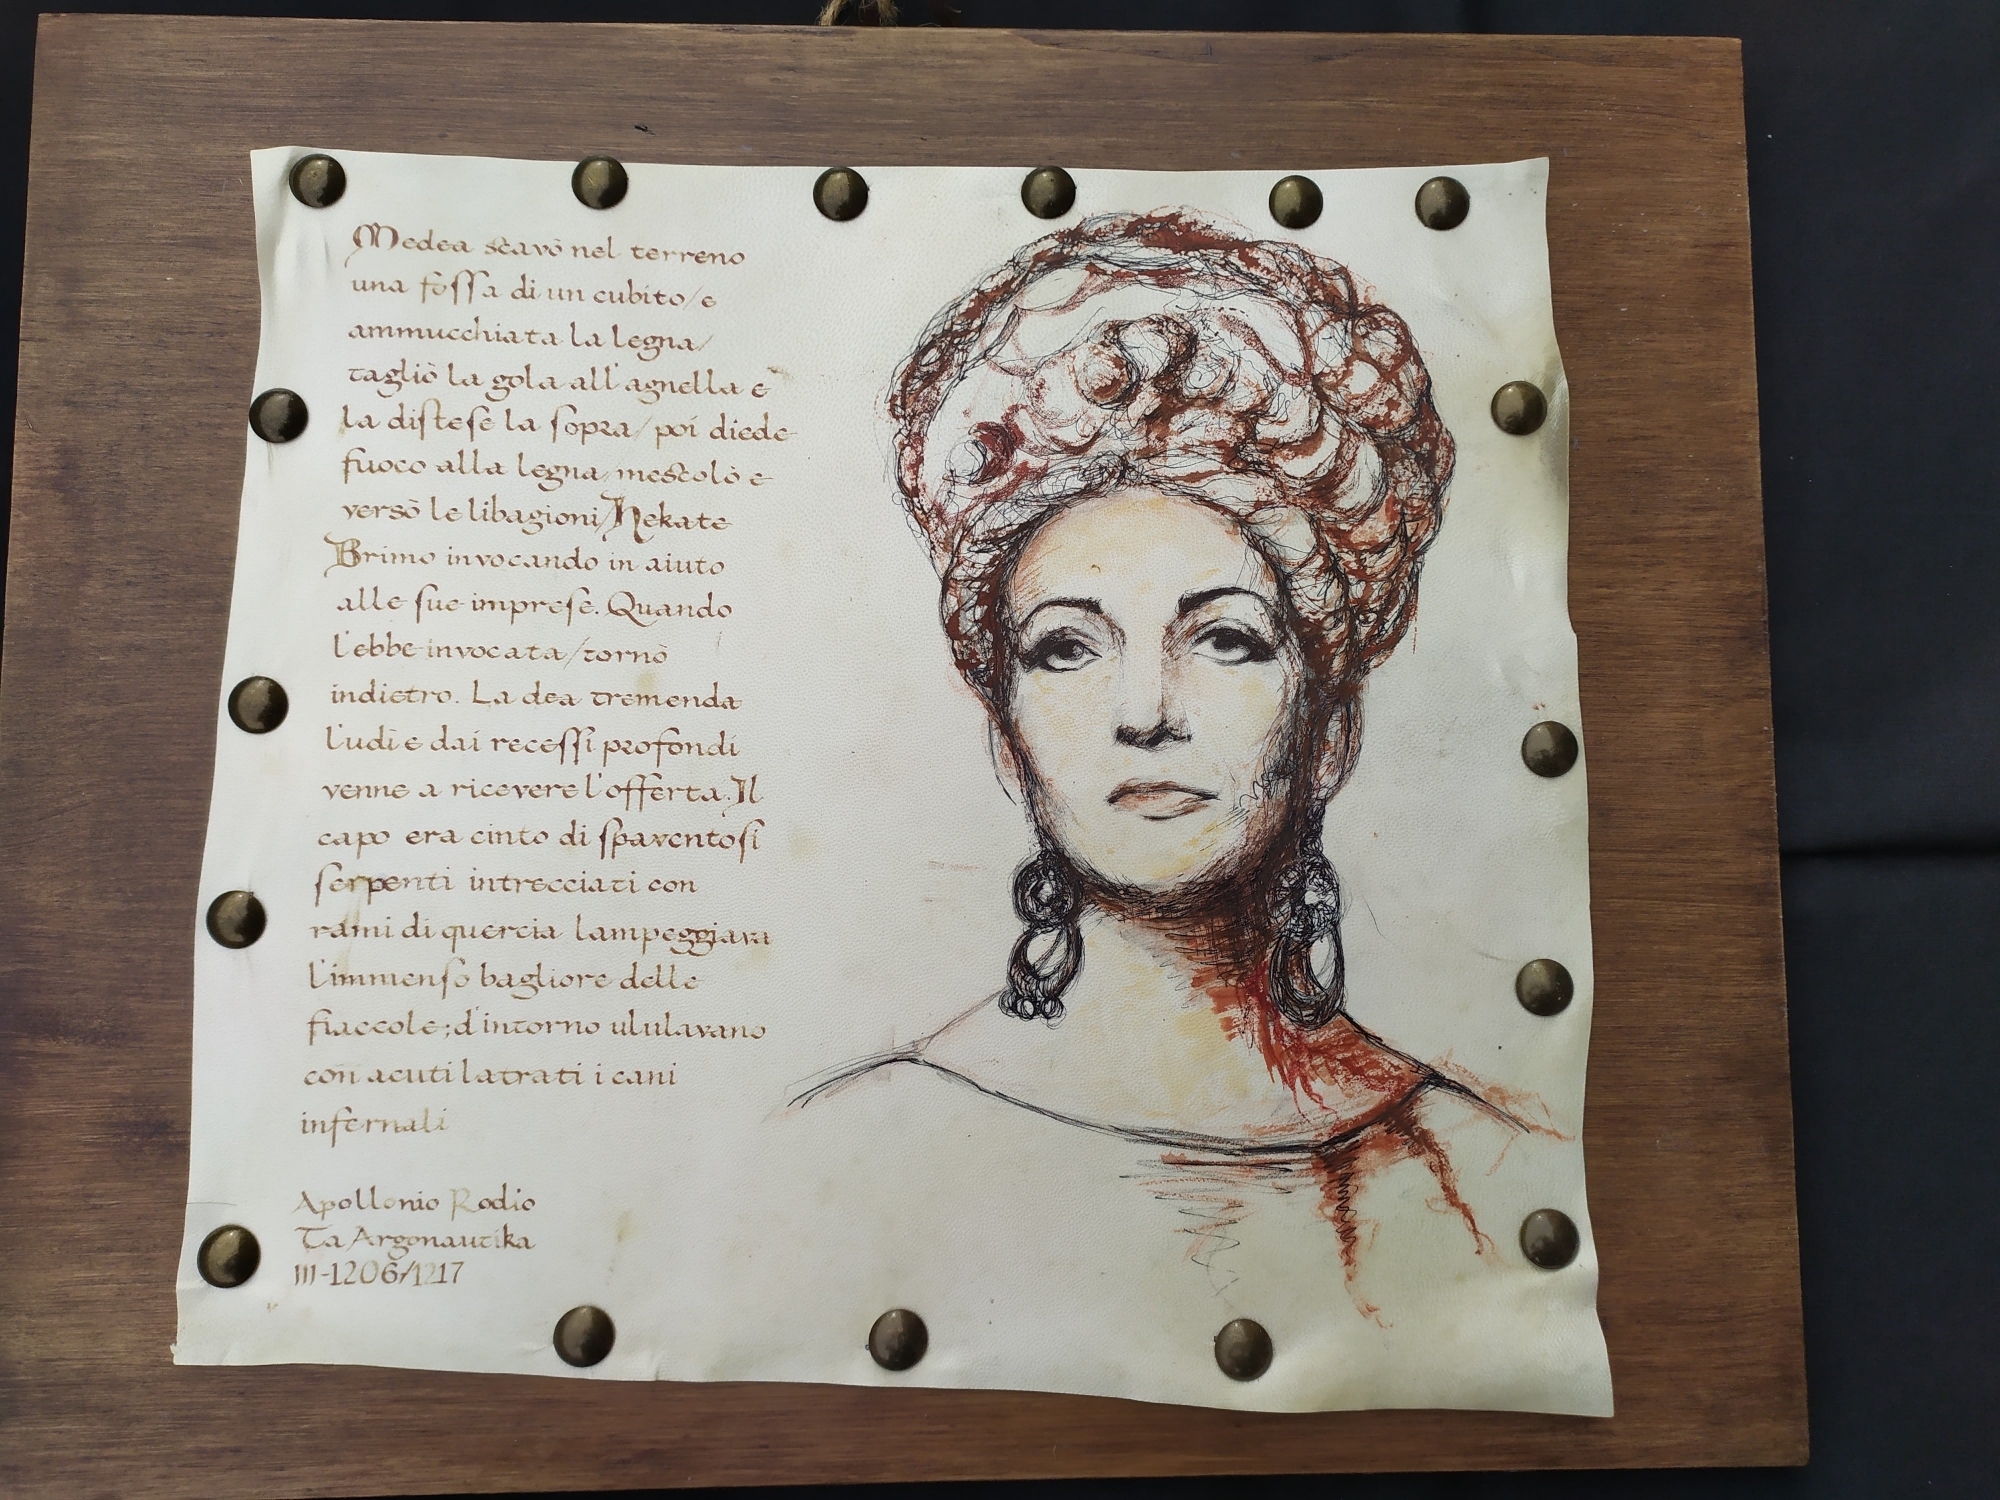 Medea scavò nel terreno
una fossa di un cubito/e
ammucchiata la legna/
tagliò la gola all'agnella e
la distese la sopra/poi diede
fuoco alla legna/mescolò e
versò le libagioni/Hekate
Brimo invocando in aiuto
alle sue imprese. Quando
l'ebbe invocata/tornò
indietro. La dea tremenda
l'udì e dai recessi profondi
venne a ricevere l'offerta. Il
capo era cinto di spaventosi
serpenti intrecciati con
rami di quercia lampeggiava
l'immenso bagliore delle
fiaccole; d'intorno ululavano
con acuti latrati i cani
infernali
Apollonio Rodio
Ta Argonautika
III-1206/1217